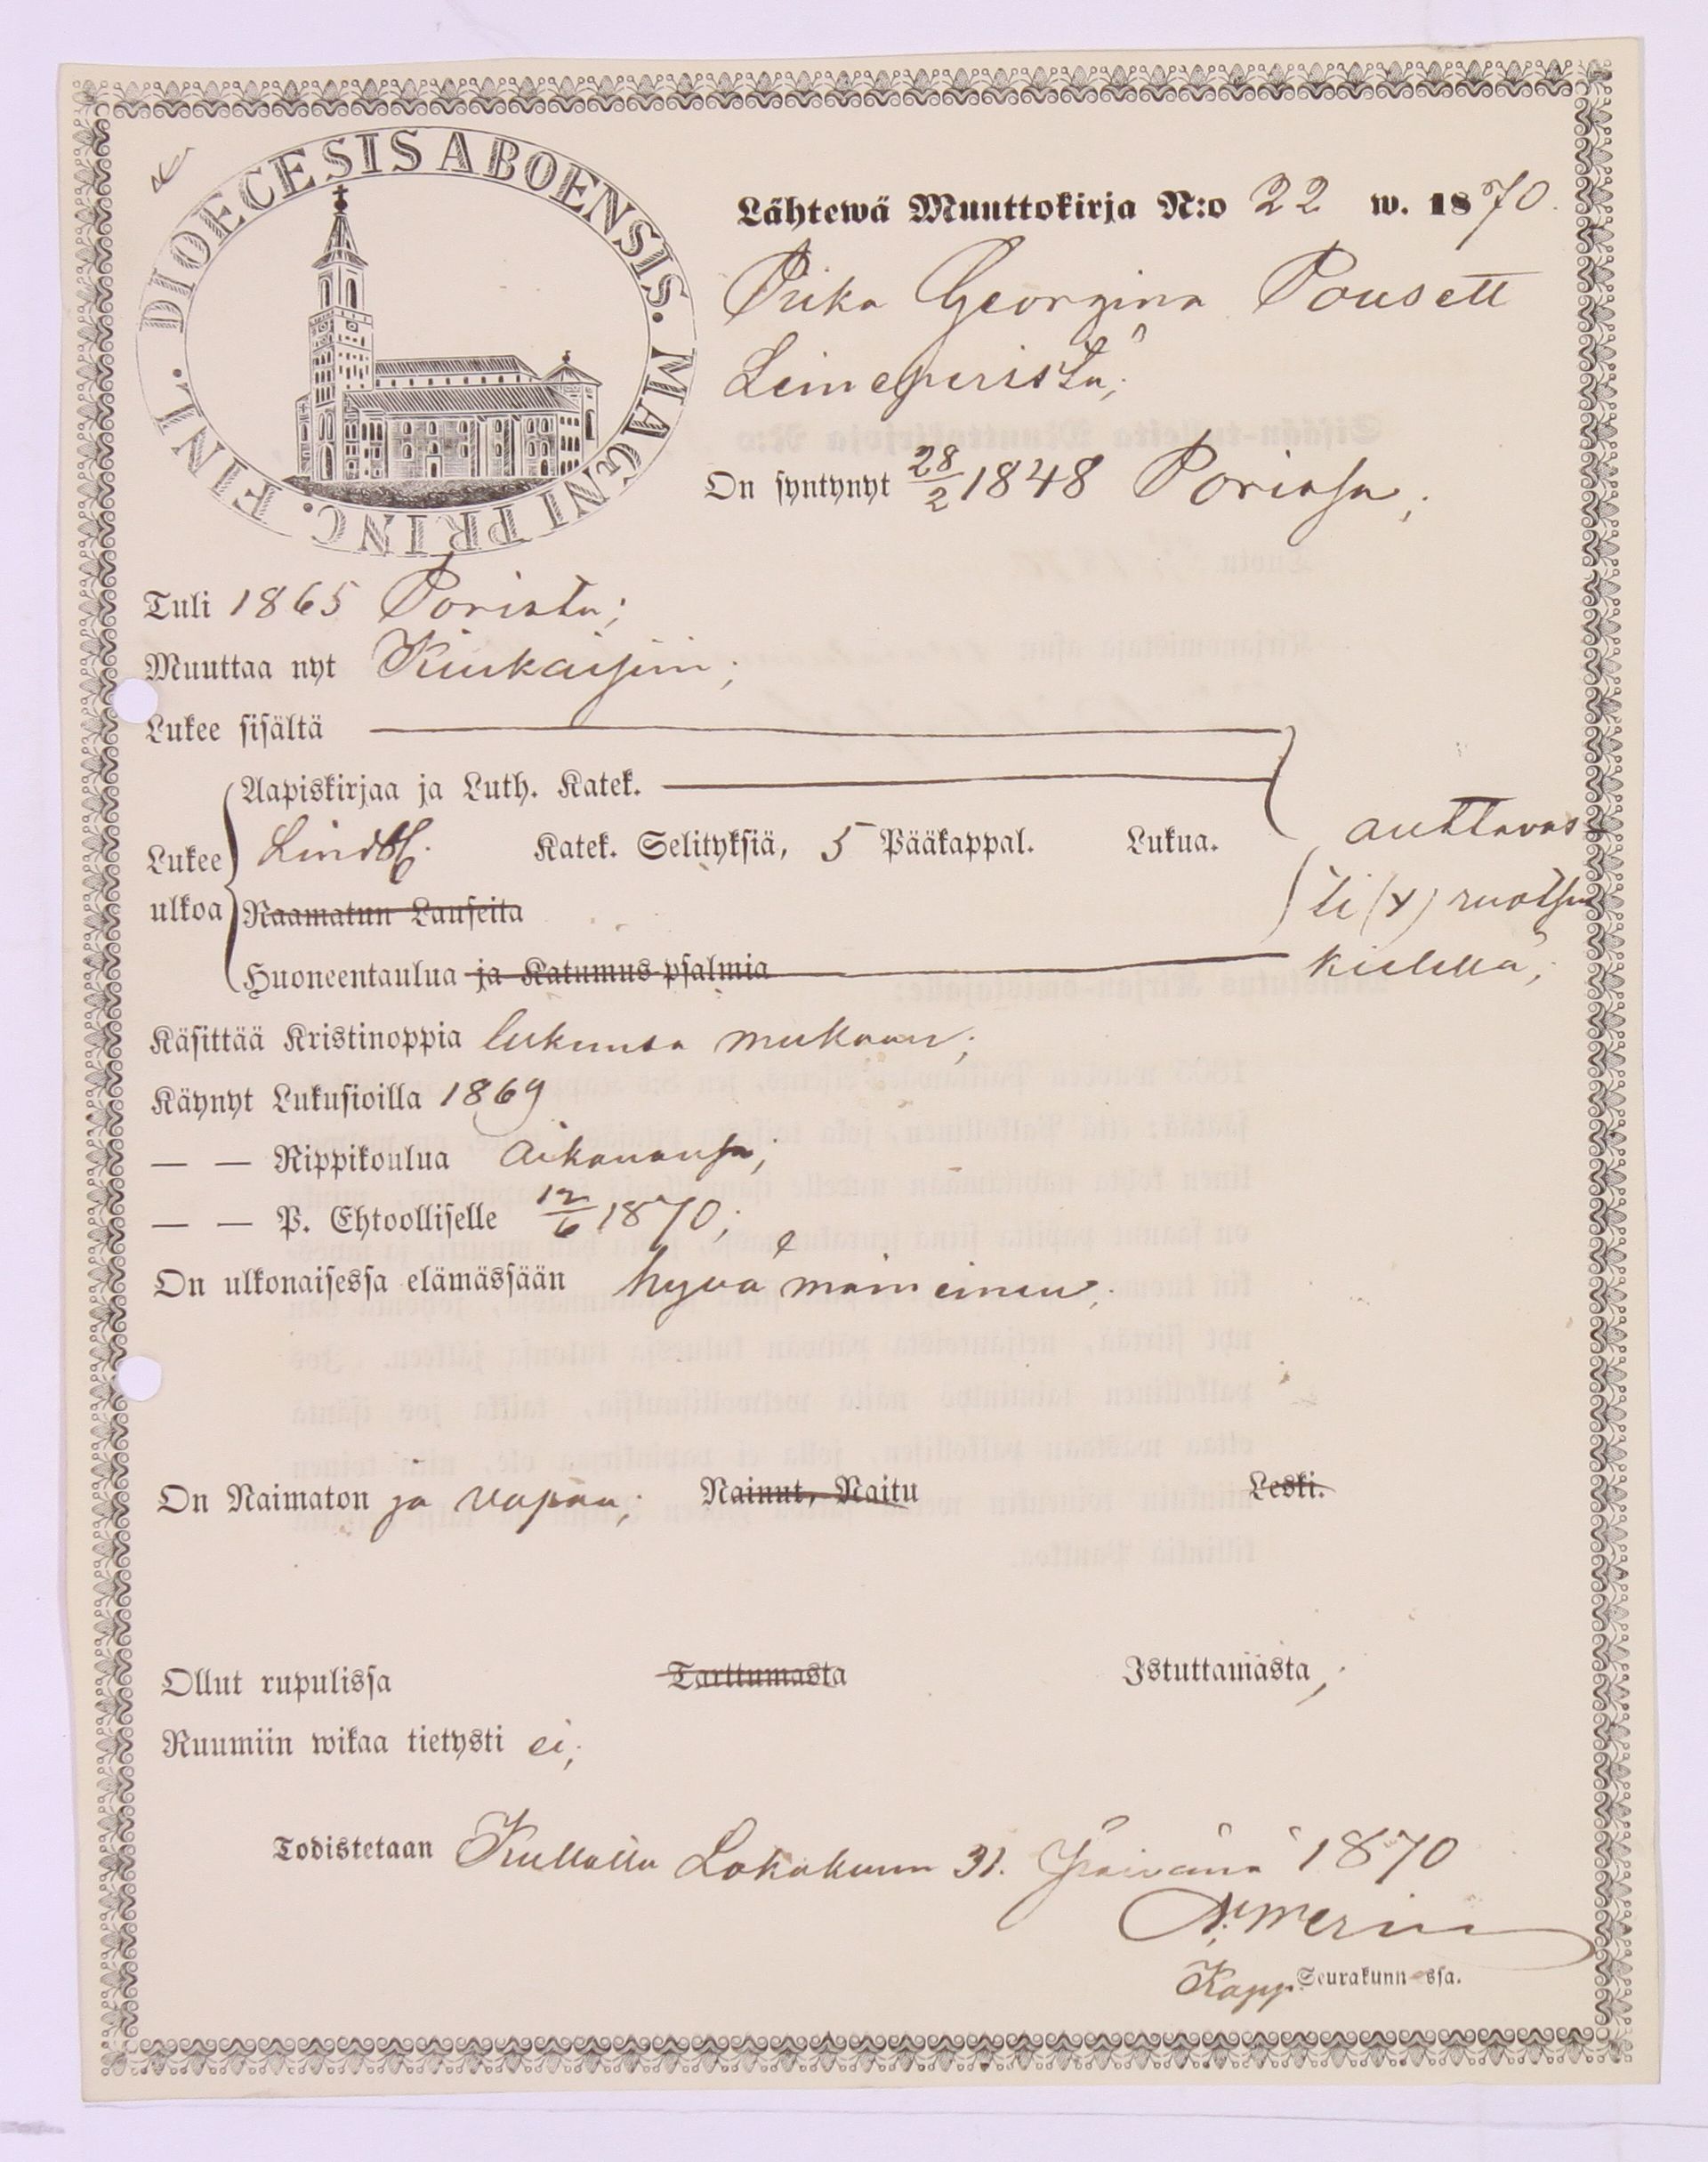 DIOECESIS ABOENSIS. MAGNI PRINC. FINL.
Lähtewä Muuttokirja N:o 22 w. 1870.
Piika Georgina Pousett
Leineperistä;
On syntynyt 28/2 1848 Porissa;
Tuli 1865 Porista;
Muuttaa nyt Kiukaisiin;
Lukee sisältä
Aapiskirjaa ja Luth. Katek.
Lukee ulkoa
Lindbl. Katek. Selityksiä, 5 Pääkappal. Lukua.
auttavas
Raamatun Lauseita
ti (x) ruotsin
Huoneentaulua ja Katumus-psalmia
kielellä;
Käsittää Kristinoppia lukunsa mukaan;
Käynyt Lukusioilla 1869
— — Rippikoulua aikanansa;
— — P. Ehtoolliselle 12/6 1870;
On ulkonaisessa elämässään hyvä maineinen;
On Naimaton ja vapaa; Nainut, Naitu Leski.
Ollut rupulissa Tarttumasta Istuttamasta;
Ruumiin wikaa tietysti ei;
Todistetaan Kullalla Lokakuun 31. Päivänä 1870
Kapp. Seurakunnassa.